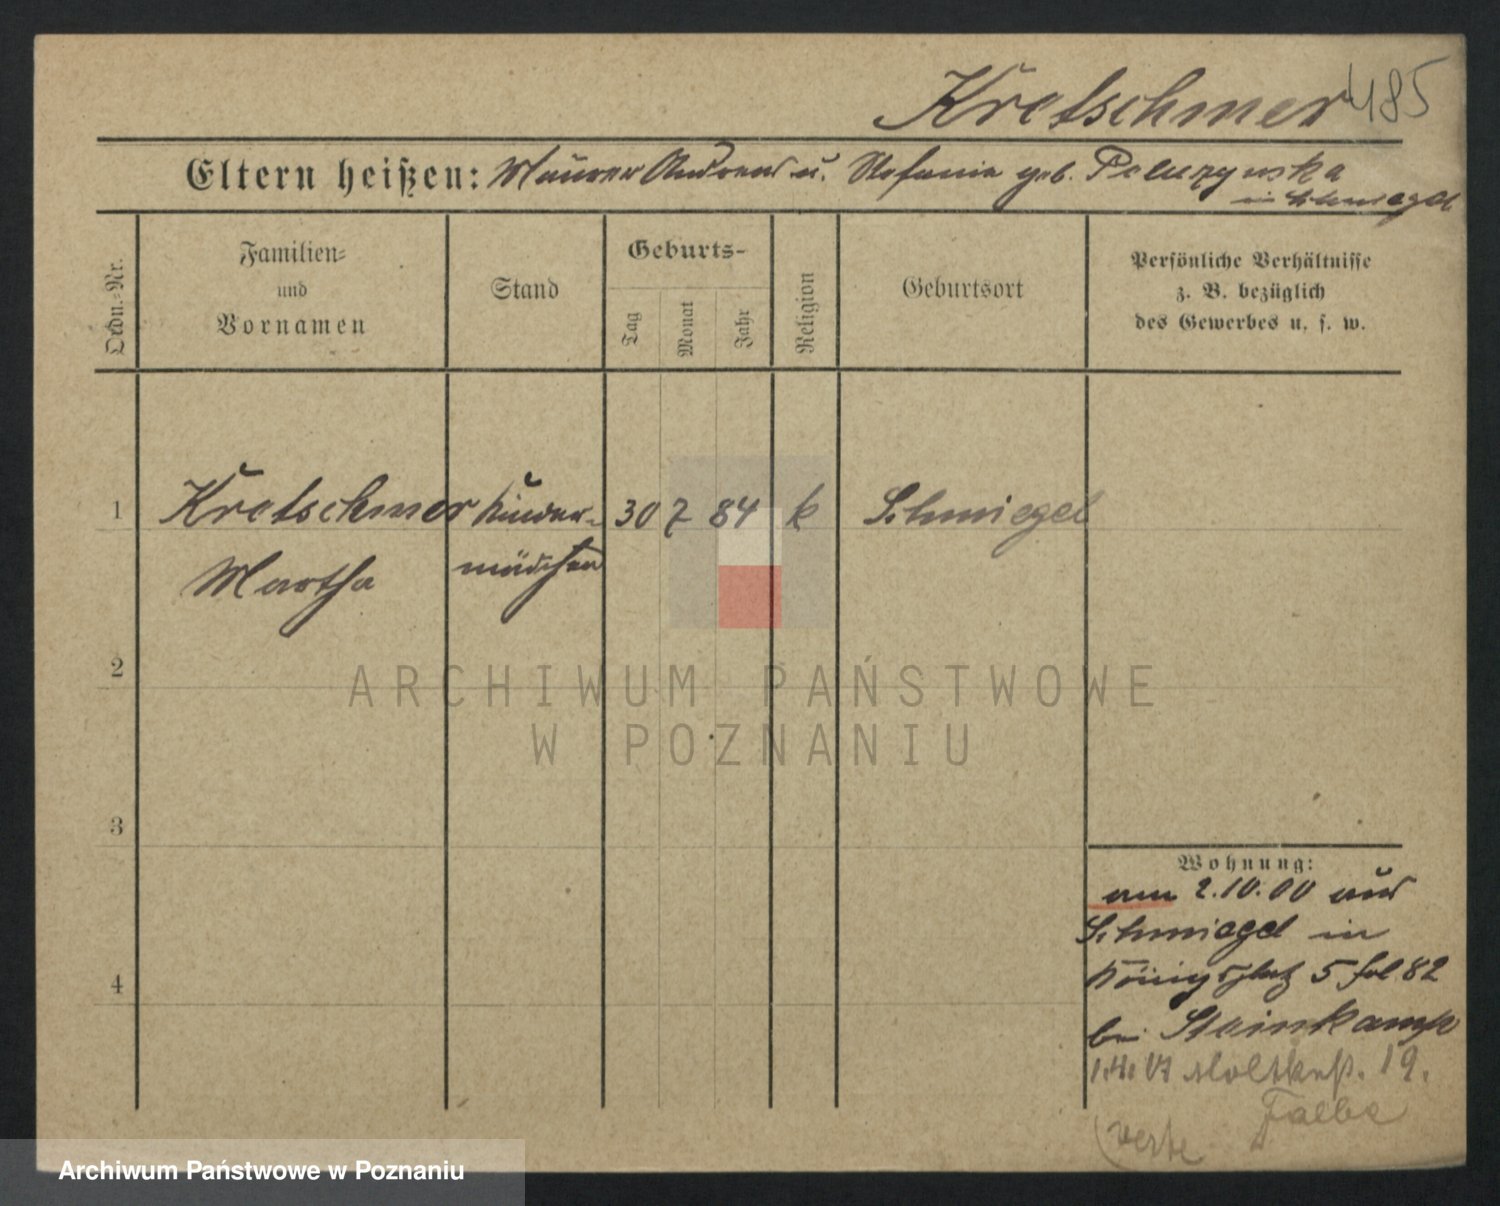 Kretschmer 485
Eltern heißen: Maurer Andreas u. Stefania geb. Peluzynska
in Schmiegel
Ordn.-Nr.
Familien-
und
Vornamen
Stand
Geburts-
Tag
Monat
Jahr
Religion
Geburtsort
Persönliche Verhältnisse
z. B. bezüglich
des Gewerbes u. s. w.
1 Kretschmer Kinder- 30 7 84 k Schmiegel
Martha mädchen
2
ARCHIWUM PAŃSTWOWE
W POZNANIU
3
4
Wohnung:
am 2.10.00 aus
Schmiegel in
Königsplatz 5 fol. 82
bei Steinkamp
1.4.07 Moltkestr. 19.
Falbe
(verte
Archiwum Państwowe w Poznaniu